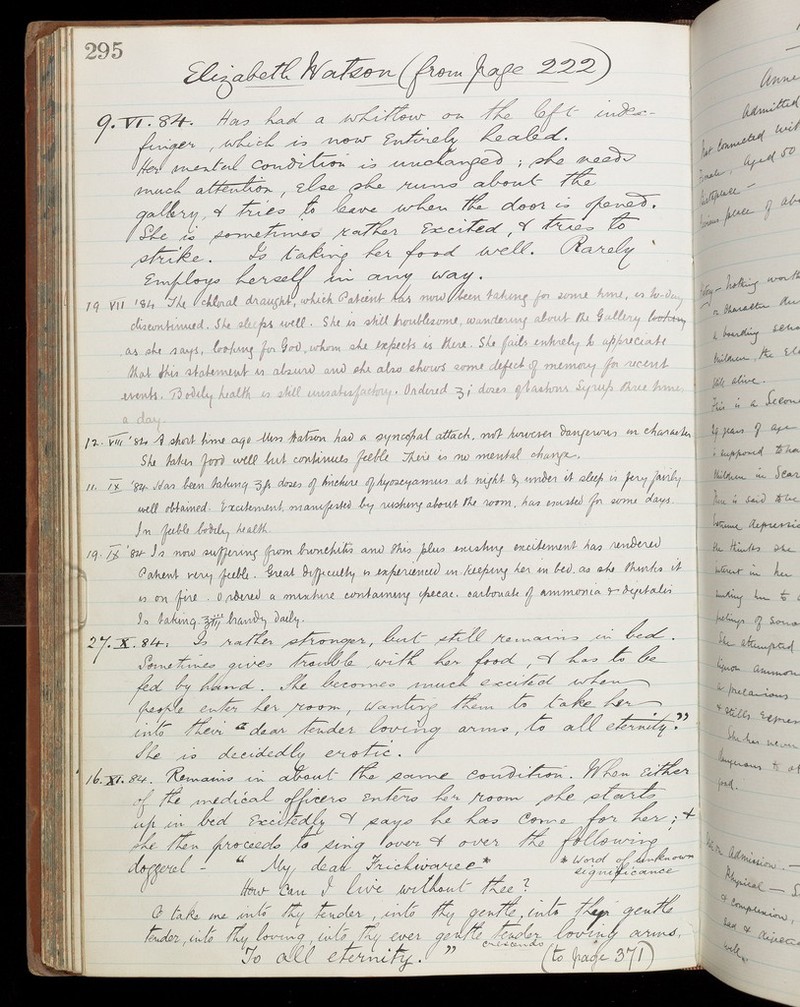 295
Elizabeth Watson (from page 222)
9. VI. 84. Has had a whitlow on the left index-
finger, which is now entirely healed.
Her mental condition is unchanged; she needs
much attention, else she runs about the
gallery, & tries to leave when the door is opened.
She is sometimes rather excited, & tries to
strike. Is taking her food well. Rarely
employs herself in any way.
19 VII '84 The chloral draught, which Patient has now been taking for some time, is to-day
discontinued. She sleeps well. She is still troublesome, wandering about the Gallery looking
as she says, looking for God, whom she expects is there. She fails entirely to appreciate
that this statement is absurd and she also shows some defect of memory for recent
events. Bodily health is still unsatisfactory. Ordered ʒi doses of Eastons Syrup three times
a day.
12. VIII '84 A short time ago Miss Watson had a syncopal attack, not however dangerous in character
She takes food well but continues feeble There is no mental change.
11. IX '84 Has been taking doses of tincture of hyoscyamus at night & under it sleep is very fairly
well obtained. Excitement, manifested by rushing about the room, has existed for some days.
In feeble bodily health.
19. IX '84 Is now suffering from bronchitis and this plus existing excitement has rendered
Patient very feeble. Great difficulty is experienced in keeping her in bed, as she thinks it
is on fire. Ordered a mixture containing ipecac. carbonate of ammonia & digitalis
Is taking brandy daily.
27. X. 84. Is rather stronger, but still remains in bed.
Sometimes gives trouble with her food, & has to be
fed by hand. She becomes much excited when
people enter her room, wanting them to take her
into their "dear tender loving arms, to all eternity."
She is decidedly erotic.
16. XI. 84. Remains in about the same condition. When either
of the medical officers enters her room she starts
up in bed excitedly & says he has come for her; &
she then proceeds to sing over & over the following
doggerel - " My dear Frichwaree*
* Word of unknown
significance
How can I live without thee?
O take me into thy tender, into thy gentle, into thy gentle
tender, into thy loving, into thy ever gentle tender loving arms.
crescendo
To all eternity. "
(to page 371)
Admitted
Not connected with
aged 50
History - Nothing
or character
a boarding
children, the
alive.
This is a Second
years of age
supposed to ha
children in
is said to be
become
she thinks she
interest in her
feelings of
She attempted
a precarious
She has never
dangerous to
food.
on Admission. -
Physical -
& complexion,
well.